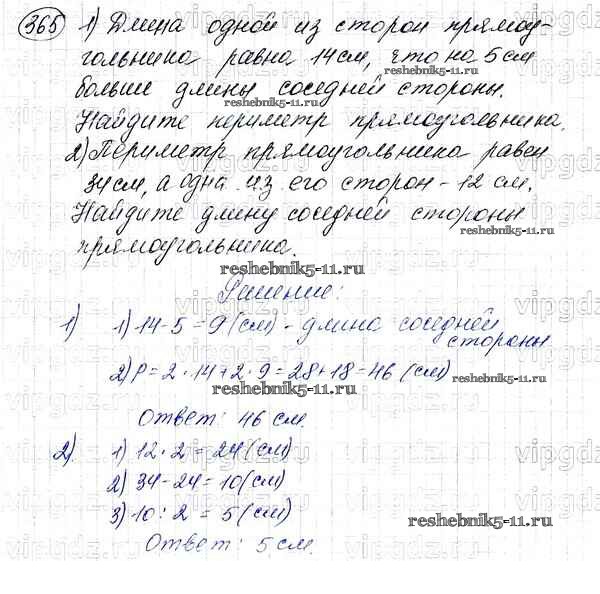 365 1) Длина одной из сторон прямоу-
гольника равна 14 см, что на 5 см
reshebnik5-11.ru
больше длины соседней стороны.
reshebnik5-11.ru
Найдите периметр прямоугольника.
2) Периметр прямоугольника равен
34 см, а одна из его сторон - 12 см.
Найдите длину соседней стороны
reshebnik5-11.ru
прямоугольника.
reshebnik5-11.ru
Решение:
1) 1) 14 - 5 = 9 (см) - длина соседней
стороны
2) P = 2 · 14 + 2 · 9 = 28 + 18 = 46 (см)
reshebnik5-11.ru
Ответ: 46 см.
2). 1) 12 · 2 = 24 (см)
2) 34 - 24 = 10 (см)
3) 10 : 2 = 5 (см)
reshebnik5-11.ru
Ответ: 5 см.